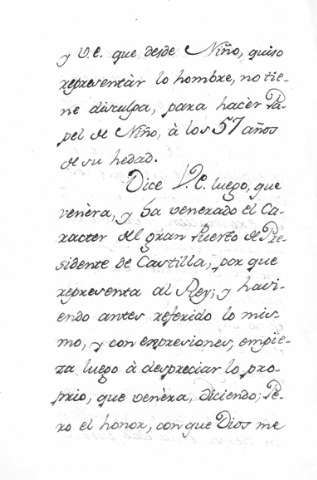 y V.E. que desde Niño, quiso
representàr lo hombre, no tie-
ne disculpa, para hacèr Pa-
pel de Niño, à los 57 años
de su hedad.
Dice V.E. luego, que
venèra, y ha venerado el Ca-
racter del gran Puesto de Pre-
sidente de Castilla, por que
representa al Rey; y havi-
endo antes referido lo mis-
mo, y con expresiones, empie-
za luego à despreciar lo pro-
prio, que venèra, diciendo; Pe-
ro el honor, con que Dios me